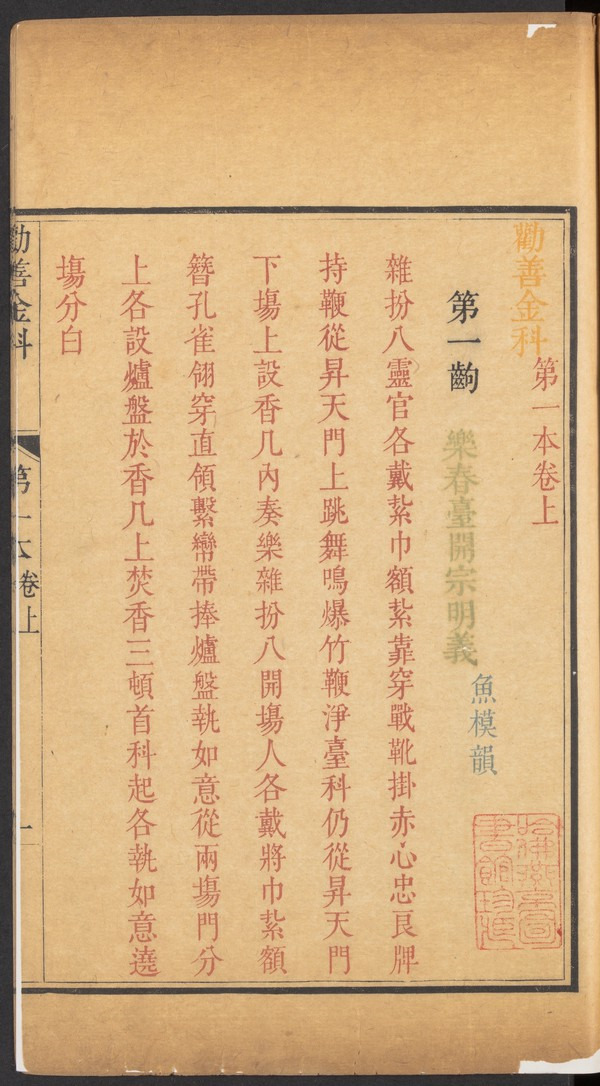 勸善金科
第一本卷上
第一齣
樂春臺開宗明義
魚模韻
雜扮八靈官各戴紥巾額紥靠穿戰靴掛赤心忠良牌
持鞭從昇天門上跳舞鳴爆竹鞭淨臺科仍從昇天門
下塲上設香几內奏樂雜扮八開塲人各戴將巾紥額
簪孔雀翎穿直領繫帶捧爐盤執如意從兩塲門分
上各設爐盤於香几上焚香三頓首科起各執如意遶
塲分白
勸善金科
第一本
卷上
一